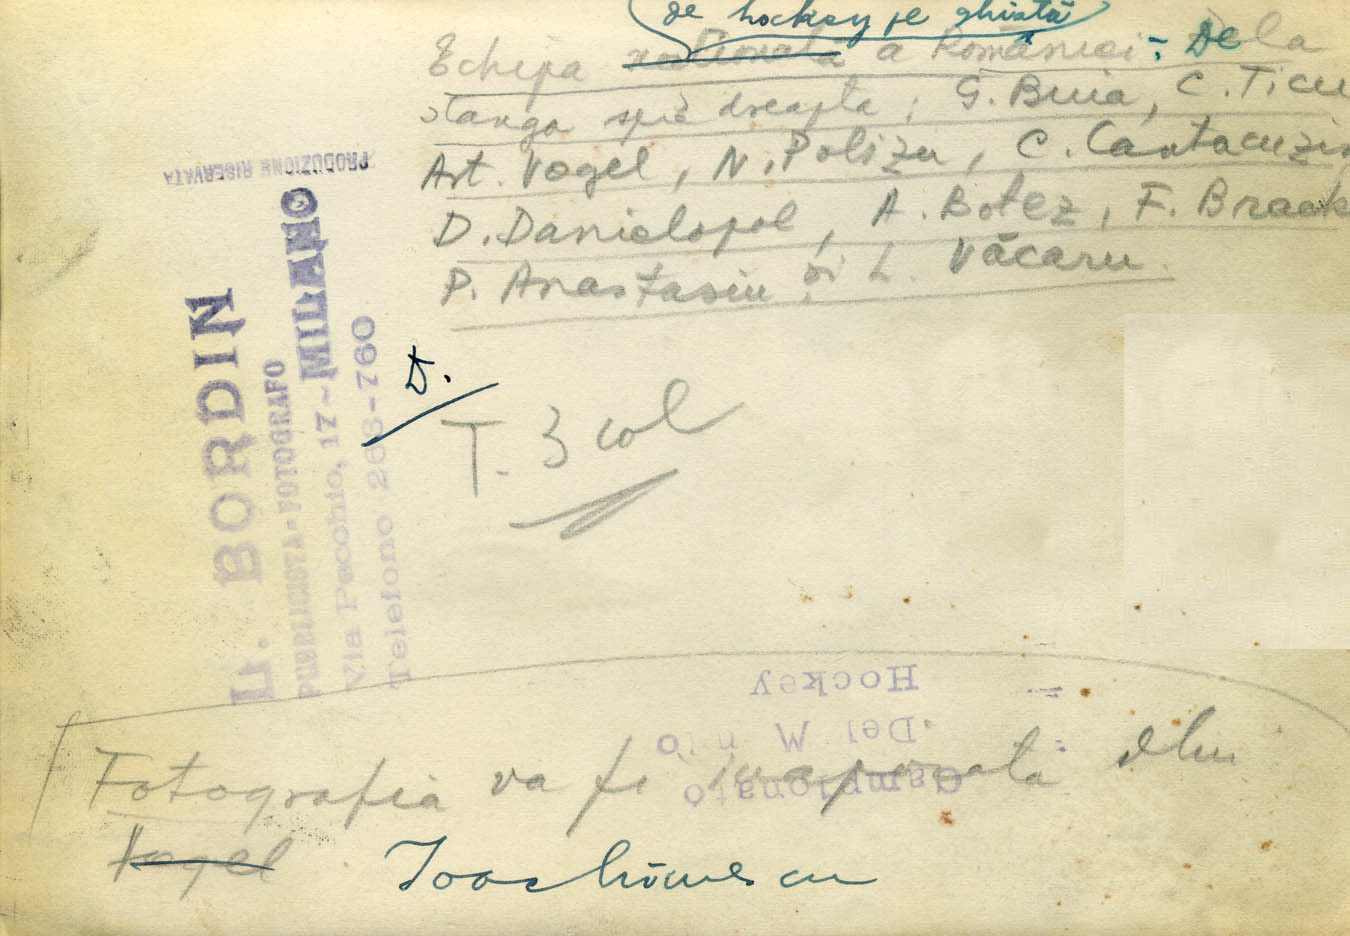 de hockey pe ghiață
Echipa națională a României: De la
stanga spre dreapta: G. Buia, C. Ticu
Art. Vogel, N. Polizu, C. Cantacuzin
D. Danielopol, A. Botez, F. Braok
P. Anastasiu și L. Văcaru.
PRODUZIONE RISERVATA
BORDIN
PUBBLICISTA-FOTOGRAFO
MILANO
Via Pecchio, 17 -
Telefono 263-760
D.
T. 3 col
Hockey
Del M n o
Campionato
Fotografia va fi inapoiata dlui
Vogel